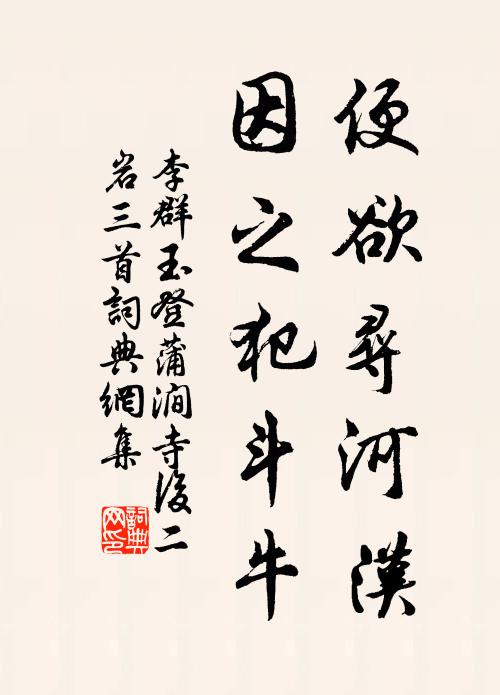 便欲尋河漢
因之犯斗牛
李群玉登蒲澗寺後二
岩三首詞典網集
詞典
网印